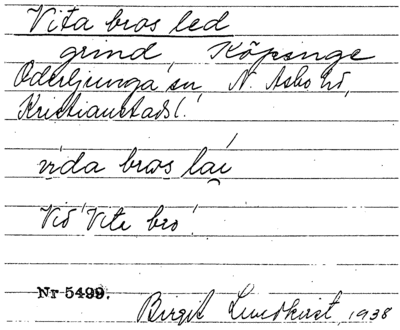 Vita bros led
grind, Köpinge
Oderljunga sn, N. Åsbo hd,
Kristianstads l.
vida bros lai
Vid 'Vita bro'
Nr 5499.
Birgit Lundkvist, 1938